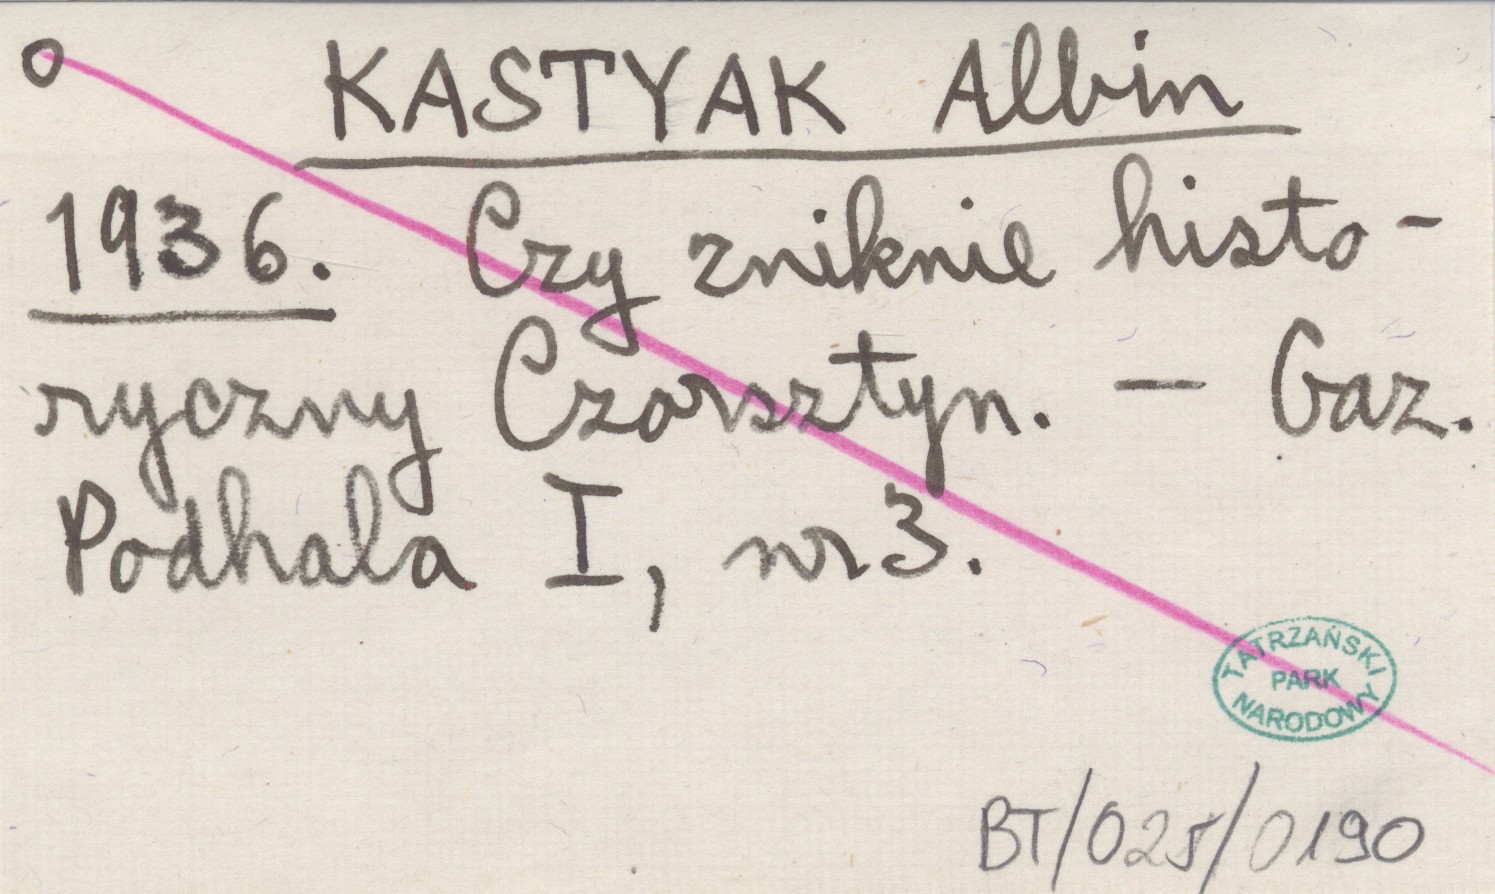 O KASTYAK Albin
1936. Czy zniknie histo-
ryczny Czorsztyn. — Gaz.
Podhala I, nr 3.
TATRZAŃSKI
PARK
NARODOWY
BT/025/0190